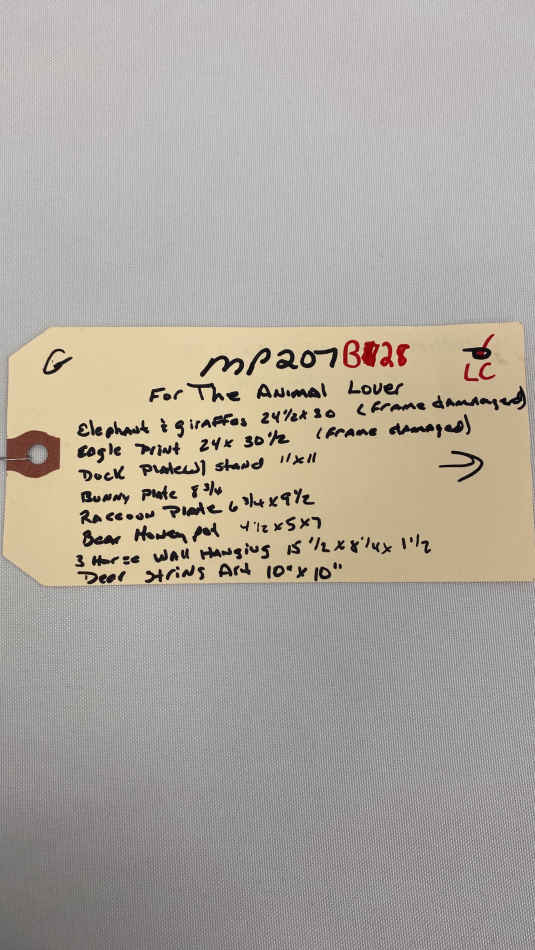 G MP207 B 28
LC
For The Animal Lover
Elephant & giraffes 24 1/2 x 30 (frame damnaged)
Eagle Print 24 x 30 1/2 (frame damaged)
Dock Plate w/ stand 11" x 11
Bunny Plate 8 3/4
Raccoon Plate 6 3/4 x 9 1/2
Bear Honey pot 4 1/2 x 5 x 7
3 Horse Wall Hanging 15 1/2 x 8 1/4 x 1 1/2
Deer String Art 10" x 10"